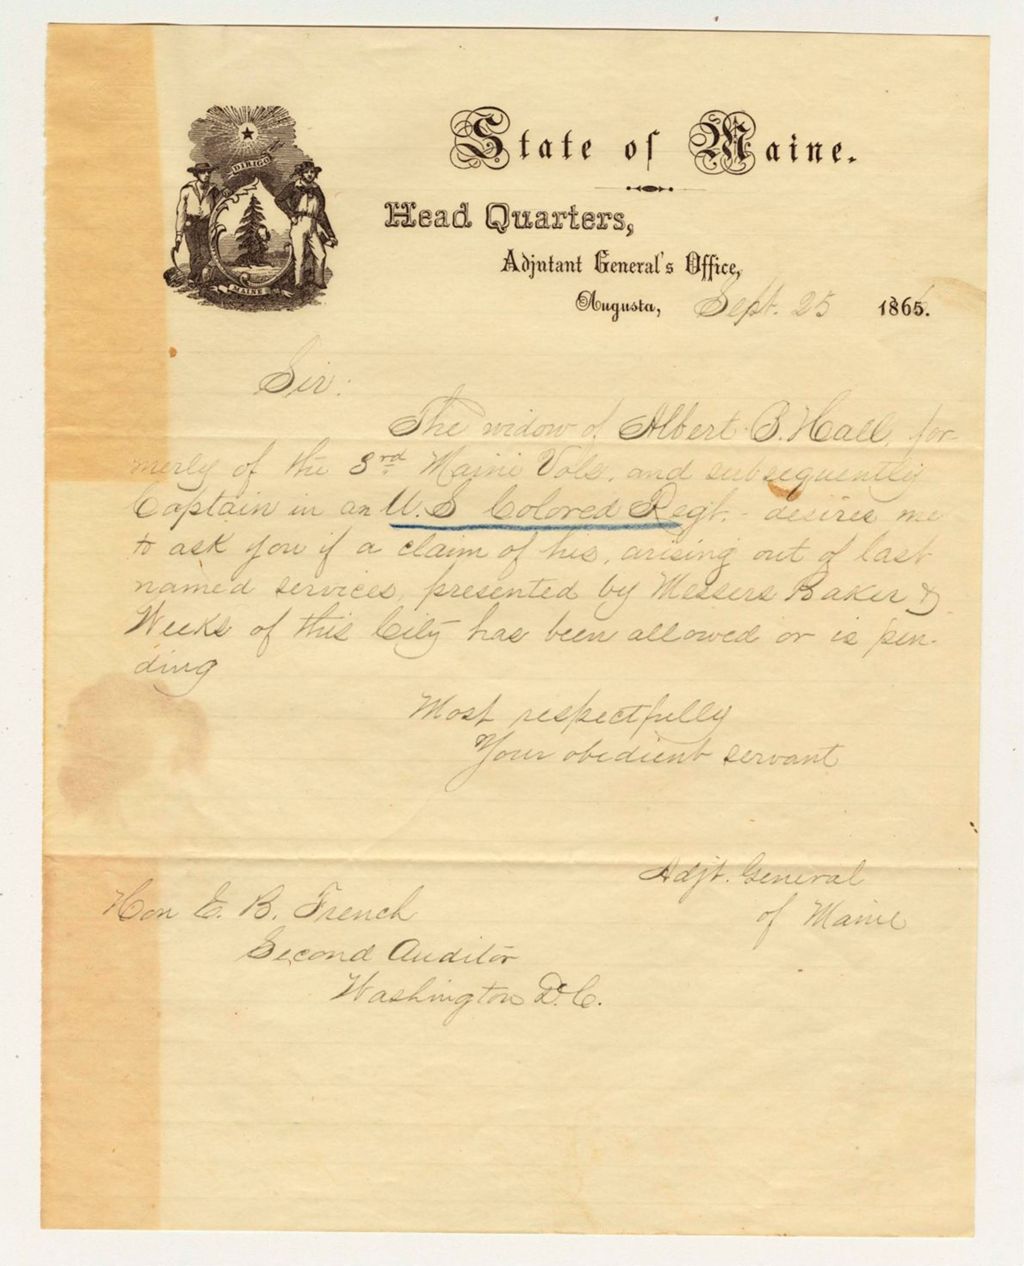 DIRIGO
MAINE
State of Maine.
Head Quarters,
Adjutant General's Office,
Augusta, Sept. 25 1866.
Sir:
The widow of Albert B. Hall, for-
merly of the 3rd Maine Vols. and subsequently
Captain in an U.S Colored Regt. - desires me
to ask you if a claim of his, arising out of last
named services, presented by Messers Baker &
Weeks of this City has been allowed or is pen-
ding
Most respectfully
Your obedient servant
Adjt. General
of Maine
Hon E. B. French
Second Auditor
Washington D.C.